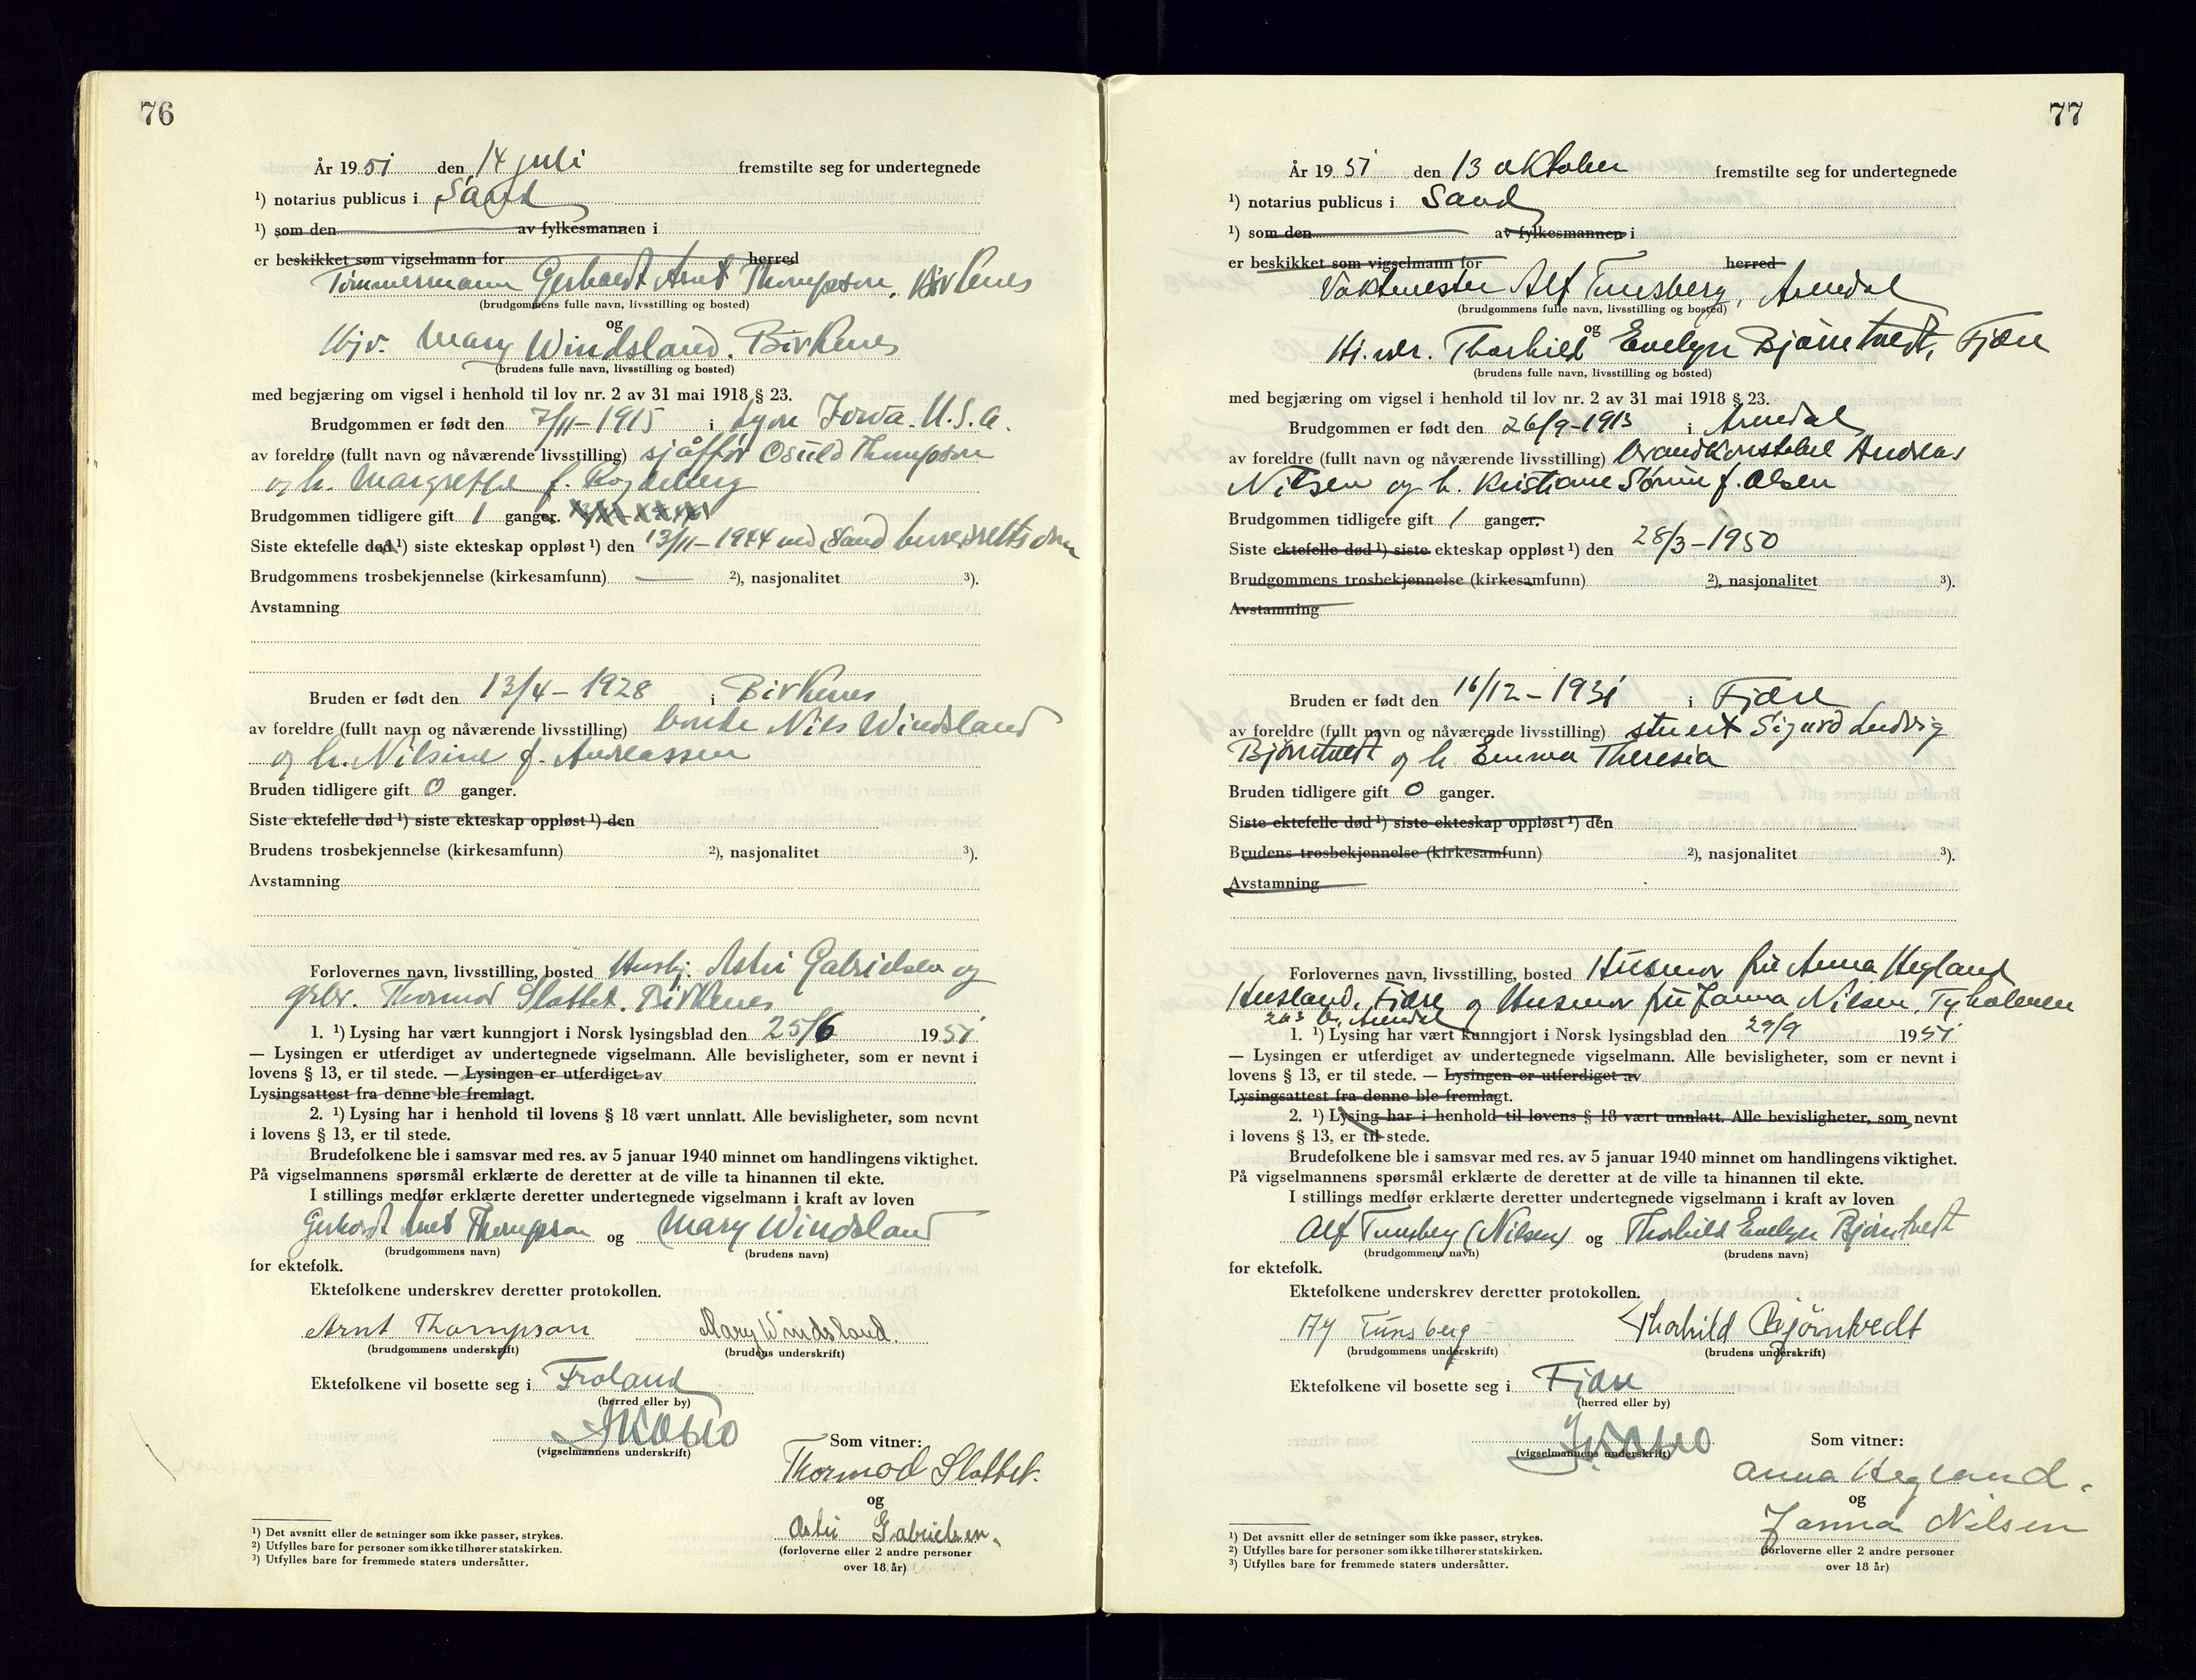 76
År 1951 den 14 juli fremstilte seg for undertegnede
¹) notarius publicus i Sand
¹) som den av fylkesmannen i
er beskikket som vigselmann for herred
Tømmermann Gerhardt Arnt Thompson, Birkenes
(brudgommens fulle navn, livsstilling og bosted)
og
Hjv. Mary Windsland. Birkenes
(brudens fulle navn, livsstilling og bosted)
med begjæring om vigsel i henhold til lov nr. 2 av 31 mai 1918 § 23.
Brudgommen er født den 7/11-1915 i Iowa. U.S.A.
av foreldre (fullt navn og nåværende livsstilling) sjåffør Osuld Thompson
og h. Margrethe f.
Brudgommen tidligere gift 1 ganger.
Siste ektefelle død ¹) siste ekteskap oppløst ¹) den 13/11-1944 ved Sand herredsretts dom
Brudgommens trosbekjennelse (kirkesamfunn) — ²), nasjonalitet ³).
Avstamning
Bruden er født den 13/4-1928 i Birkenes
av foreldre (fullt navn og nåværende livsstilling) bonde Nils Windsland
og h. Nilsine f. Andreassen
Bruden tidligere gift 0 ganger.
Siste ektefelle død ¹) siste ekteskap oppløst ¹) den
Brudens trosbekjennelse (kirkesamfunn) ²), nasjonalitet ³).
Avstamning
Forlovernes navn, livsstilling, bosted Husbj. Astri Gabrielsen og
grbr. Thormod Slottet. Birkenes
1. ¹) Lysing har vært kunngjort i Norsk lysingsblad den 25/6 1951
— Lysingen er utferdiget av undertegnede vigselmann. Alle bevisligheter, som er nevnt i
lovens § 13, er til stede. — Lysingen er utferdiget av
Lysingsattest fra denne ble fremlagt.
2. ¹) Lysing har i henhold til lovens § 18 vært unnlatt. Alle bevisligheter, som nevnt
i lovens § 13, er til stede.
Brudefolkene ble i samsvar med res. av 5 januar 1940 minnet om handlingens viktighet.
På vigselmannens spørsmål erklærte de deretter at de ville ta hinannen til ekte.
I stillings medfør erklærte deretter undertegnede vigselmann i kraft av loven
Gerhardt Arnt Thompson og Mary Windsland
(brudgommens navn) (brudens navn)
for ektefolk.
Ektefolkene underskrev deretter protokollen.
Arnt Thompson Mary Windsland.
(brudgommens underskrift) (brudens underskrift)
Ektefolkene vil bosette seg i Froland
(herred eller by)
(vigselmannens underskrift)
Som vitner:
Thormod Slottet.
og
Astri Gabrielsen.
(forloverne eller 2 andre personer
over 18 år)
¹) Det avsnitt eller de setninger som ikke passer, strykes.
²) Utfylles bare for personer som ikke tilhører statskirken.
³) Utfylles bare for fremmede staters undersåtter.
77
År 1951 den 13 oktober fremstilte seg for undertegnede
¹) notarius publicus i Sand
¹) som den av fylkesmannen i
er beskikket som vigselmann for herred
Vaktmester Alf Tunsberg, Arendal
(brudgommens fulle navn, livsstilling og bosted)
og
Hj. vær. Thorhild Evelyn Bjørntvedt, Fjære
(brudens fulle navn, livsstilling og bosted)
med begjæring om vigsel i henhold til lov nr. 2 av 31 mai 1918 § 23.
Brudgommen er født den 26/9-1913 i Arendal
av foreldre (fullt navn og nåværende livsstilling) brandkonstabel Andreas
Nilsen og h. Kristiane Sørine f. Olsen
Brudgommen tidligere gift 1 ganger.
Siste ektefelle død ¹) siste ekteskap oppløst ¹) den 28/3-1950
Brudgommens trosbekjennelse (kirkesamfunn) ²), nasjonalitet ³).
Avstamning
Bruden er født den 16/12-1931 i Fjære
av foreldre (fullt navn og nåværende livsstilling) stuert Sigurd Ludvig
Bjørntvedt og h. Emma Theresia
Bruden tidligere gift 0 ganger.
Siste ektefelle død ¹) siste ekteskap oppløst ¹) den
Brudens trosbekjennelse (kirkesamfunn) ²), nasjonalitet ³).
Avstamning
Forlovernes navn, livsstilling, bosted Husmor fru Anna Hegland
Husland, Fjære og Husmor fru Janna Nilsen, Tyholmen
Arendal
1. ¹) Lysing har vært kunngjort i Norsk lysingsblad den 29/9 1951
— Lysingen er utferdiget av undertegnede vigselmann. Alle bevisligheter, som er nevnt i
lovens § 13, er til stede. — Lysingen er utferdiget av
Lysingsattest fra denne ble fremlagt.
2. ¹) Lysing har i henhold til lovens § 18 vært unnlatt. Alle bevisligheter, som nevnt
i lovens § 13, er til stede.
Brudefolkene ble i samsvar med res. av 5 januar 1940 minnet om handlingens viktighet.
På vigselmannens spørsmål erklærte de deretter at de ville ta hinannen til ekte.
I stillings medfør erklærte deretter undertegnede vigselmann i kraft av loven
Alf Tunsberg (Nilsen) og Thorhild Evelyn Bjørntvedt
(brudgommens navn) (brudens navn)
for ektefolk.
Ektefolkene underskrev deretter protokollen.
Alf Tunsberg Thorhild Bjørntvedt
(brudgommens underskrift) (brudens underskrift)
Ektefolkene vil bosette seg i Fjære
(herred eller by)
(vigselmannens underskrift)
Som vitner:
Anna Hegland.
og
Janna Nilsen
(forloverne eller 2 andre personer
over 18 år)
¹) Det avsnitt eller de setninger som ikke passer, strykes.
²) Utfylles bare for personer som ikke tilhører statskirken.
³) Utfylles bare for fremmede staters undersåtter.